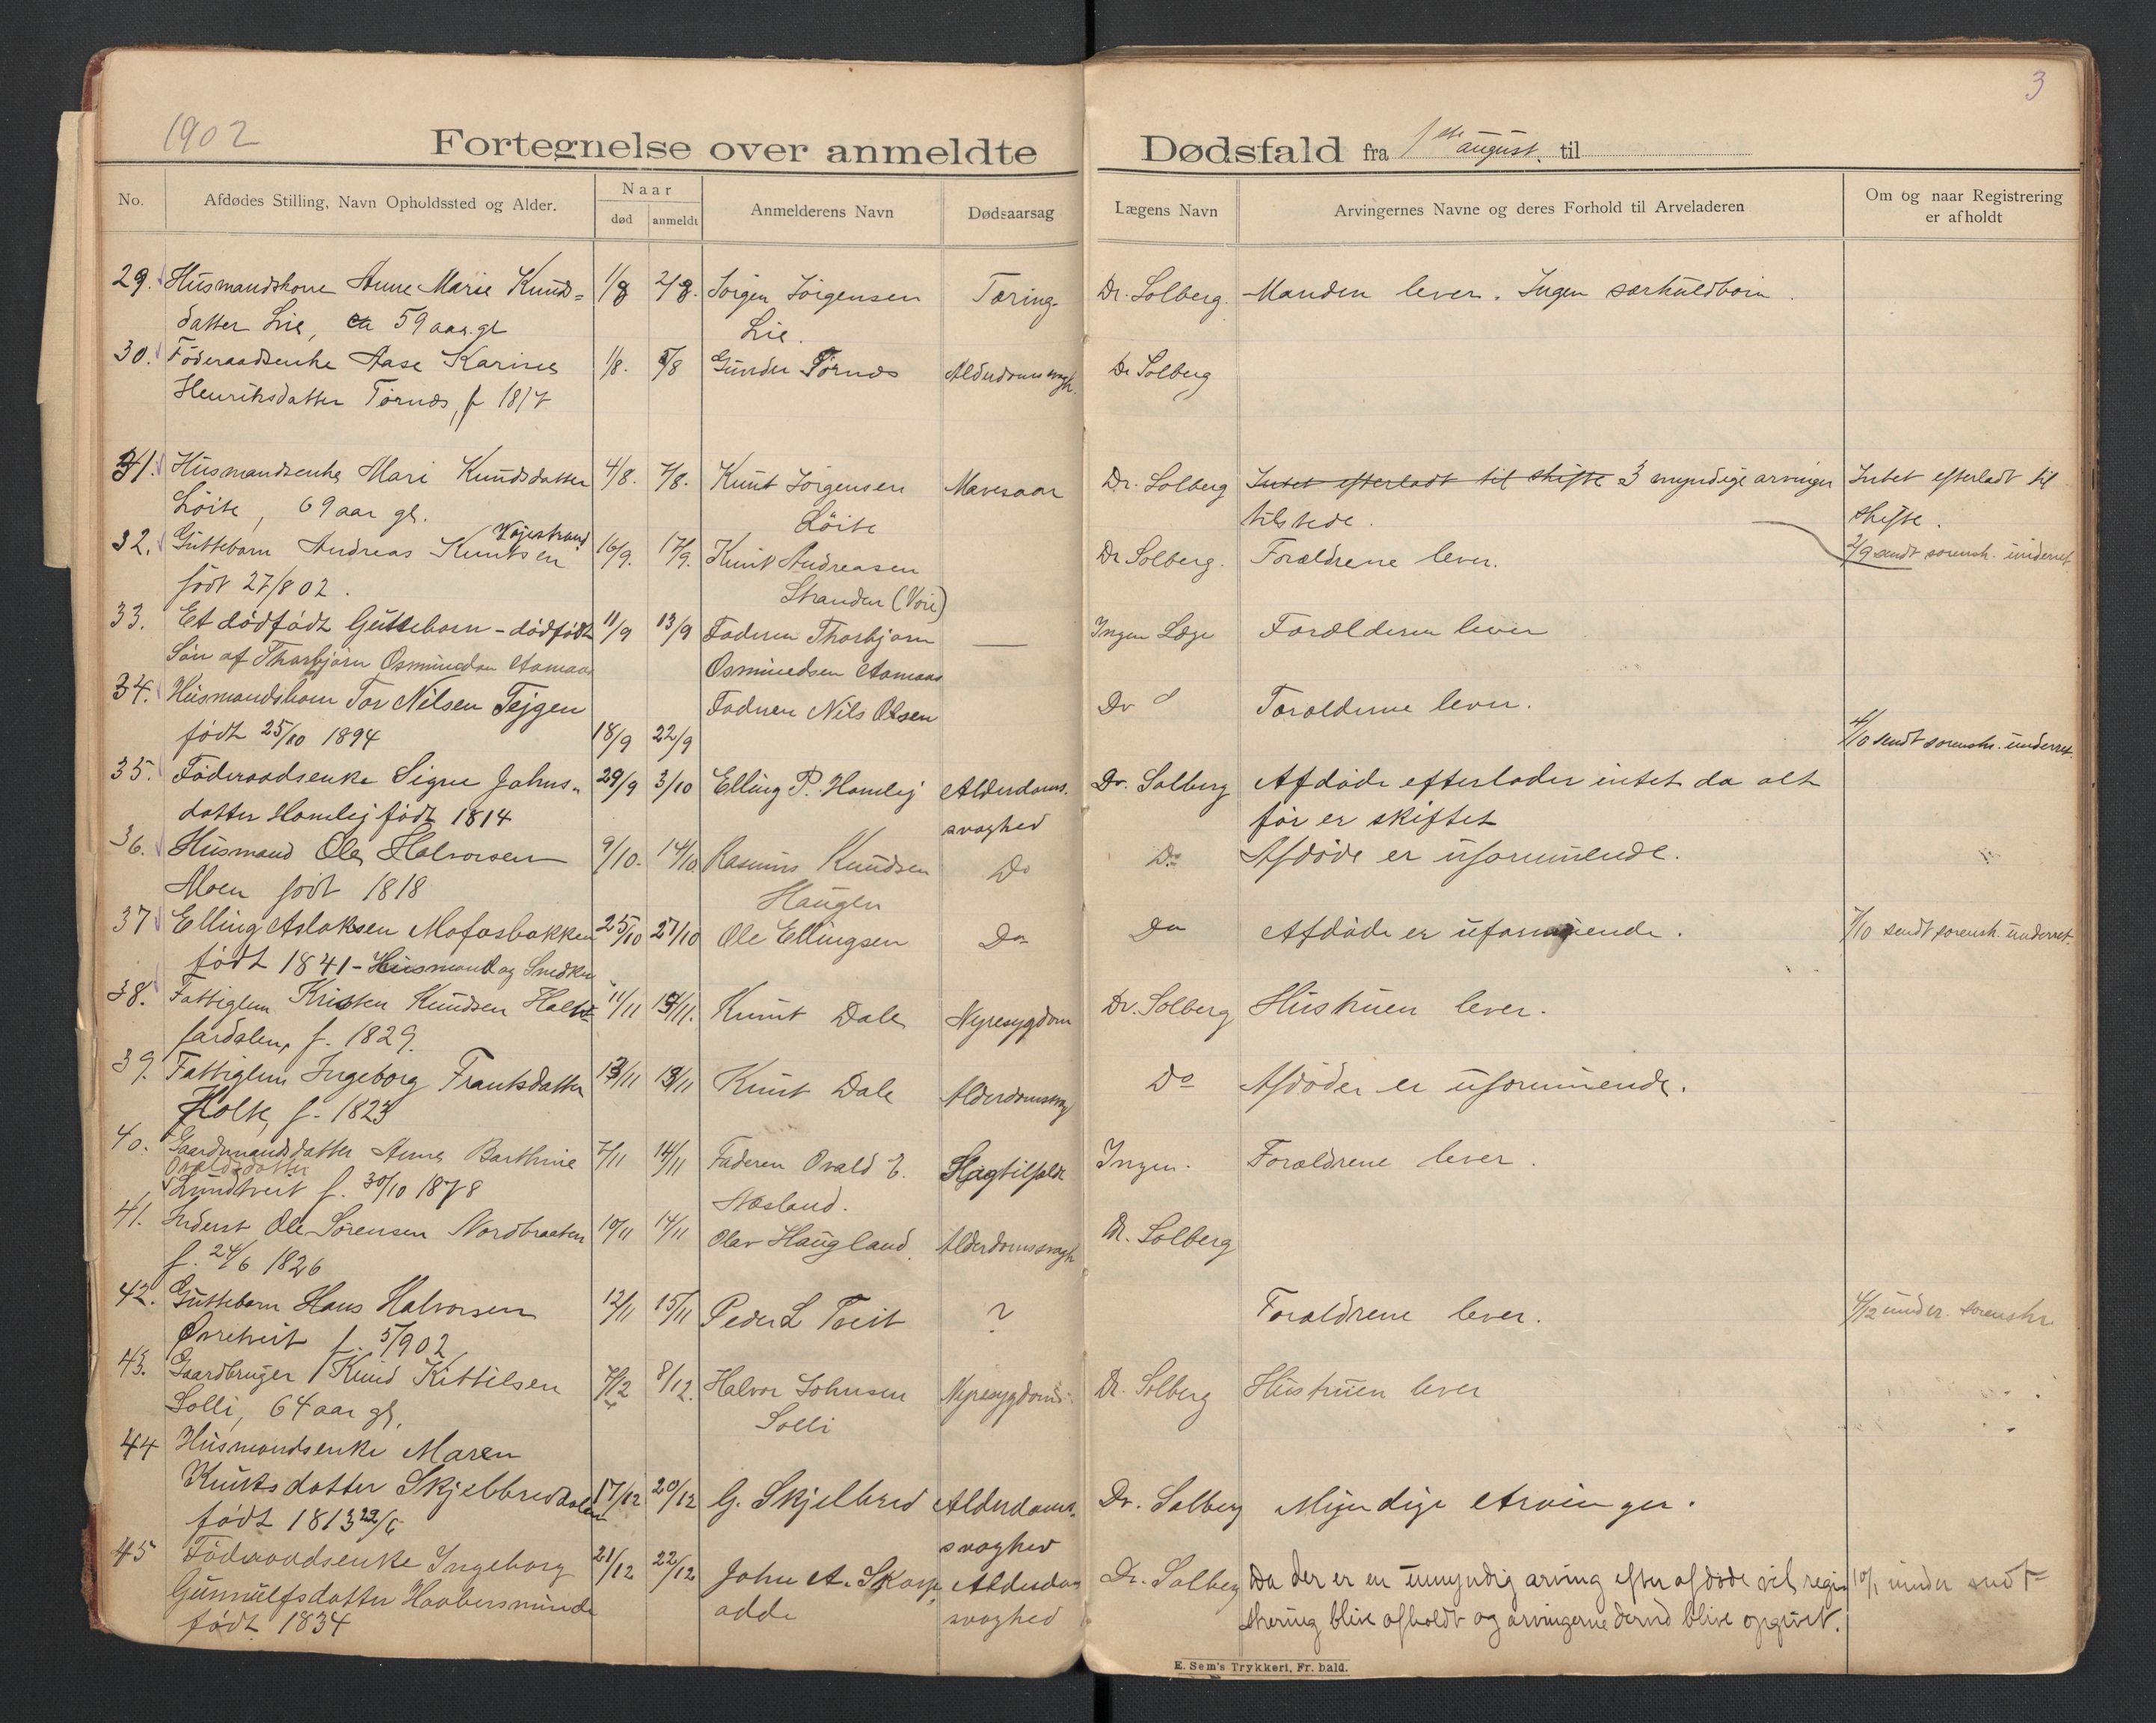 1902
3
Fortegnelse over anmeldte Dødsfald fra 1ste august. til
No. Afdødes Stilling, Navn Opholdssted og Alder. Naar død anmeldt Anmelderens Navn Dødsaarsag Lægens Navn Arvingernes Navne og deres Forhold til Arveladeren Om og naar Registrering er afholdt
29. Husmandskone Anne Marie Knuds= 1/8 2/8. Jørgen Jørgensen Tæring Dr. Solberg. Manden lever. Ingen særkuldbørn.
datter Lie, ca 59 aar. gl Lie.
30. Føderaadsenke Aase Karine 1/8. 5/8 Gunder Tørnes Alderdomssvagh. Dr Solberg
Henriksdatter Tørnes, f 1817
31. Husmandsenke Mari Knudsdatter 4/8. 7/8. Knut Jørgensen Mavesaar Dr. Solberg Intet efterladt til skifte 3 myndige arvinger Intet efterladt til
Løite, 69 aar gl. Løite tilstede. skifte.
32. Guttebarn Andreas Knutsen Vojestrand 16/9. 17/9. Knut Andreasen Dr Solberg. Forældrene lever. 2/9 sendt sorensk. underret.
født 27/8 02. Stranden (Voie)
33. Et dødfødt Guttebarn - dødfødt 11/9 13/9 Faderen Thorbjørn — Ingen Læge Forælderen lever
Søn af Thorbjørn Osmundsen Aamaas Osmundsen Aamaas
34. Husmandsbarn Tor Nilsen Tejgen Faderen Nils Olsen Do Forælderne lever.
født 25/10 1894 18/9 22/9 4/10 sendt sorenskr. underret.
35. Føderaadsenke Signe Johns- 29/9 3/10 Elling P. Homlej Alderdoms- Dr. Solberg Afdøde efterlader intet da alt
datter Homlej født 1814 svaghed før er skiftet
36. Husmand Ole Halvorsen 9/10. 14/10. Rasmus Knudsen Do Do Afdøde er uformuende.
Moen født 1818 Haugen
37 Elling Aslaksen Mofosbakken 25/10 27/10 Ole Ellingsen Do Do Afdøde er uformuende. 7/10 sendt sorensk. underret.
født 1841 - Husmand og Snedker
38. Fattiglem Kristen Knudsen 11/11 13/11. Knut Dale Nyresygdom Dr. Solberg Hustruen lever.
f. 1829.
39. Fattiglem Ingeborg Frantsdatter 13/11 13/11 Knut Dale Alderdomssvag Do Afdøde er uformuende.
Holte, f. 1823
40. Gaardmandsdatter Anne Barthine 7/11 14/11 Faderen Ovald E. Slagtilfælde Ingen. Forældrene lever.
Ovaldsdatter
Lundtveit f. 30/10 1878 Næsland.
41. Inderst Ole Sørensen Nordbraaten 10/11 14/11 Olav Haugland. Alderdomssvagh Dr. Solberg
f. 24/6 1826
42. Guttebarn Hans Halvorsen 12/11 15/11 Peder L Tveit ? Forældrene lever. 4/12 under. sorenskr.
Øvretveit f. 5/902
43. Gaardbruger Knud Kittilsen 7/12 8/12. Halvor Johnsen Nyresygdom Dr. Solberg Hustruen lever
Solli, 64 aar gl. Solli
44 Husmandsenke Maren
Knutsdatter Skjelbreddalen 17/12 20/12 G. Skjelbred Alderdoms- Dr. Solberg Myndige Arvinger.
født 1813 22/6 svaghed
45 Føderaadsenke Ingeborg 21/12 22/12 John A. Skarp- Alderdoms Dr. Solberg Da der er en umyndig arving efter afdøde vil regi= 10/1 under sendt
Gunnulfsdatter Haabersminde odde svaghed strering blive afholdt og arvingerne derved blive opgivet.
født 1834
E. Sem's Trykkeri, Fr. hald.